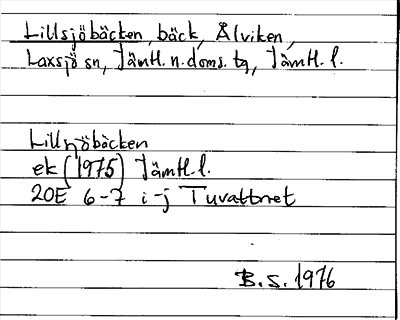 Lillsjöbäcken, bäck, Ålviken,
Laxsjö sn, Jämtl. n. doms. tg, Jämtl. l.
Lillsjöbäcken
ek (1975) Jämtl. l.
20E 6-7 i-j Tuvattnet
B. S. 1976